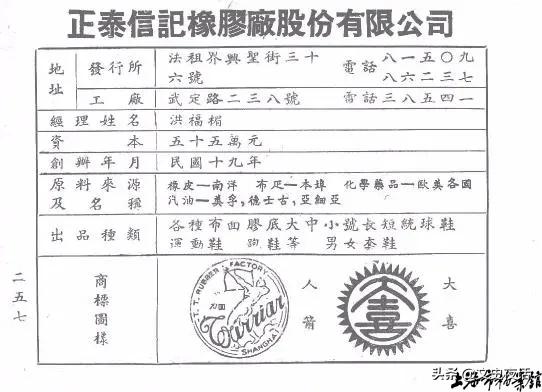 正泰信記橡膠廠股份有限公司
地址
發行所
法租界興聖街三十六號
電話
八一五〇九
八六二三七
工廠
武定路二三八號
電話三八五四一
經理姓名
洪福楣
資本
五十五萬元
創辦年月
民國十九年
原料來源及名稱
橡皮—南洋 布疋—本埠 化學藥品—歐美各國
汽油—美孚,德士古,亞細亞
出品種類
各種布面膠底大中小號長短統球鞋
運動鞋 跑鞋等 男女套鞋
商標圖樣
C.T. RUBBER FACTORY
Warriar
SHANGHAI
人箭
大喜
大喜
二五七
上海市档案館